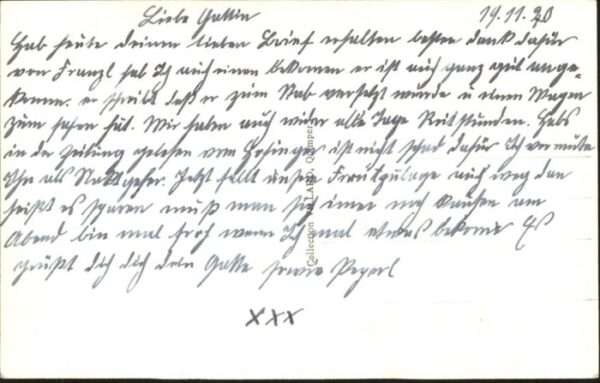 Liebe Gattin 19.11.20
Hab heute deinen lieben Brief erhalten besten dank dafür
von Franzl hab Ich auch einen bekomen er ist auch ganz gut ange-
komen. er schreibt daß er zum Stab versetzt wurde u einen Wagen
zum fahren hat. Wir haben auch wider alle Tage Reitstunden. Habs
in der Zeitung gelesen vom ist nicht schad dafür Ich vermute
Ihn als Jetzt fällt unsere auch weg dan
heißt es sparen muß man sich imer noch kaufen am
Abend bin mal froh wenn Ich mal etwas bekome Es
grüßt dich dich dein Gatte sowie Peperl
xxx
Collection Quimper